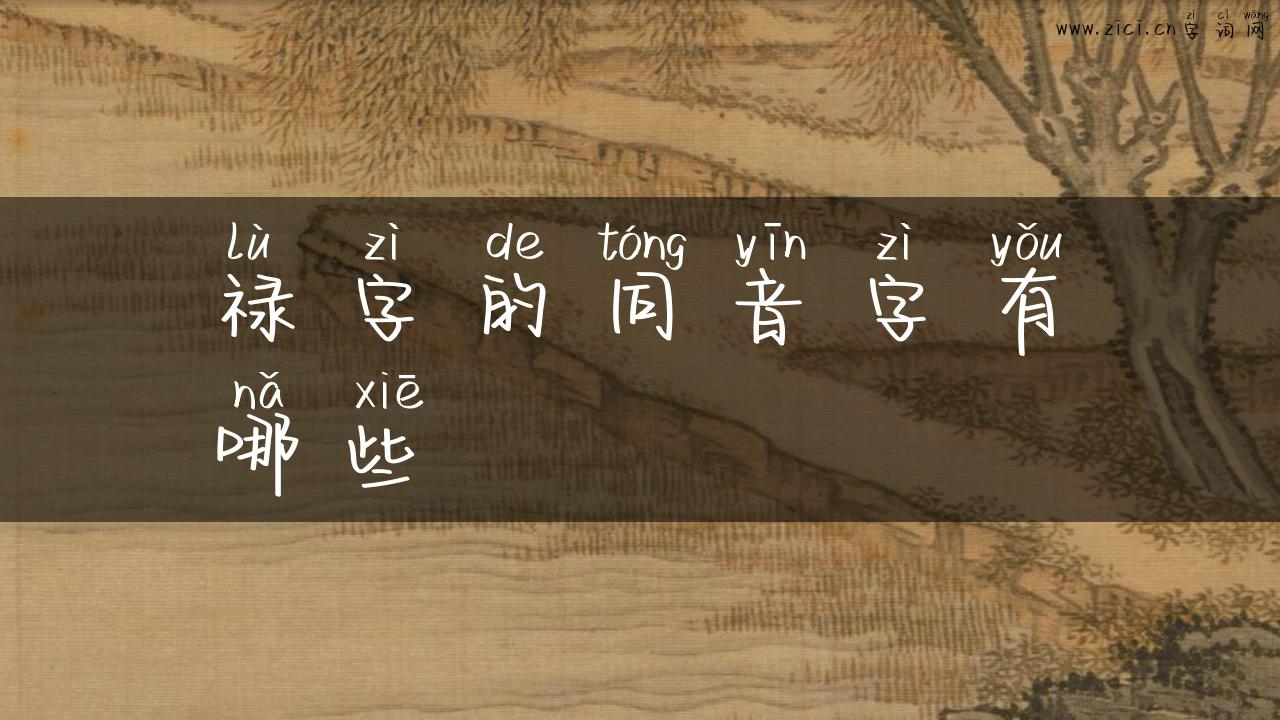 zì cí wǎng
www.zici.cn字词网
lù zì de tóng yīn zì yǒu
禄字的同音字有
nǎ xiē
哪些